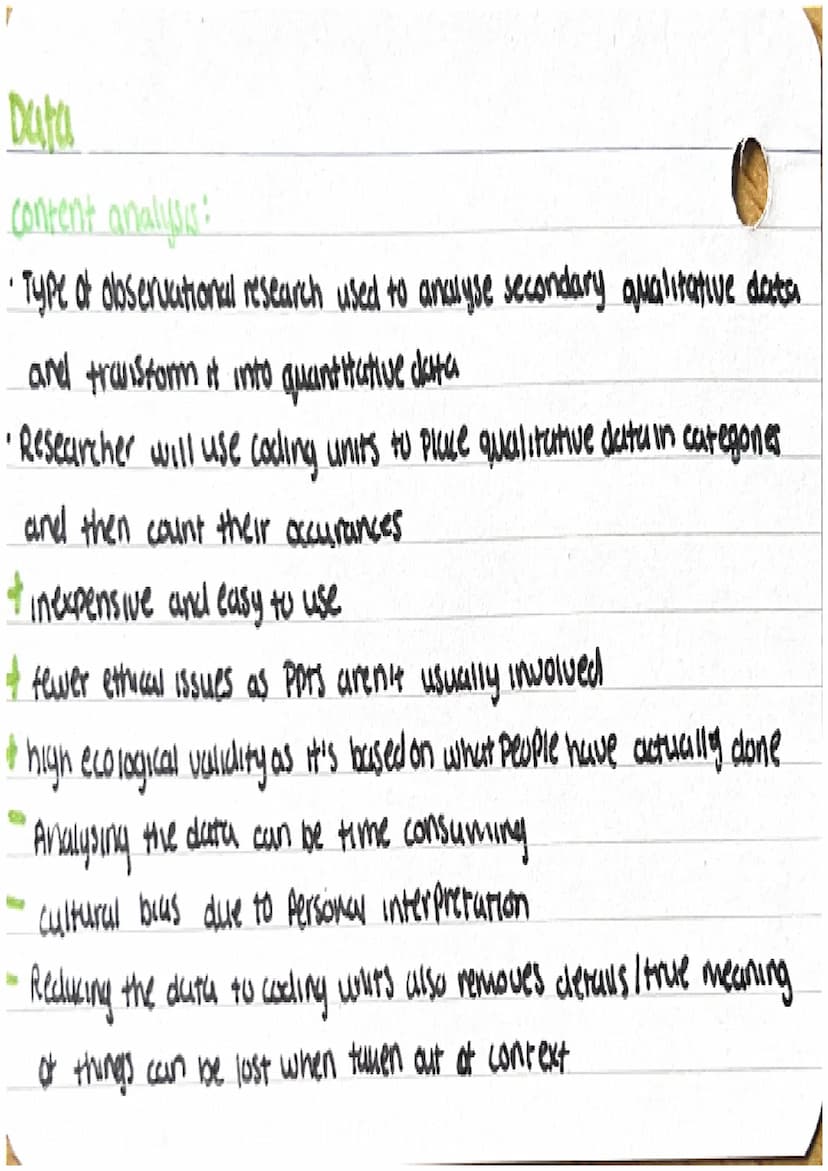 Data
content analysis:
· Type of observational research used to analyse secondary qualitative data
and transform it into quantitative data
· Researcher will use coding units to place qualitative data in categories
and then count their occurances
+ inexpensive and easy to use
+ fewer ethical issues as ppts aren't usually involved
+ high ecological validity as it's based on what people have actually done
- Analysing the data can be time consuming
- cultural bias due to personal interpretation
- Reducing the data to coding units also removes details/true meaning
of things can be lost when taken out of context